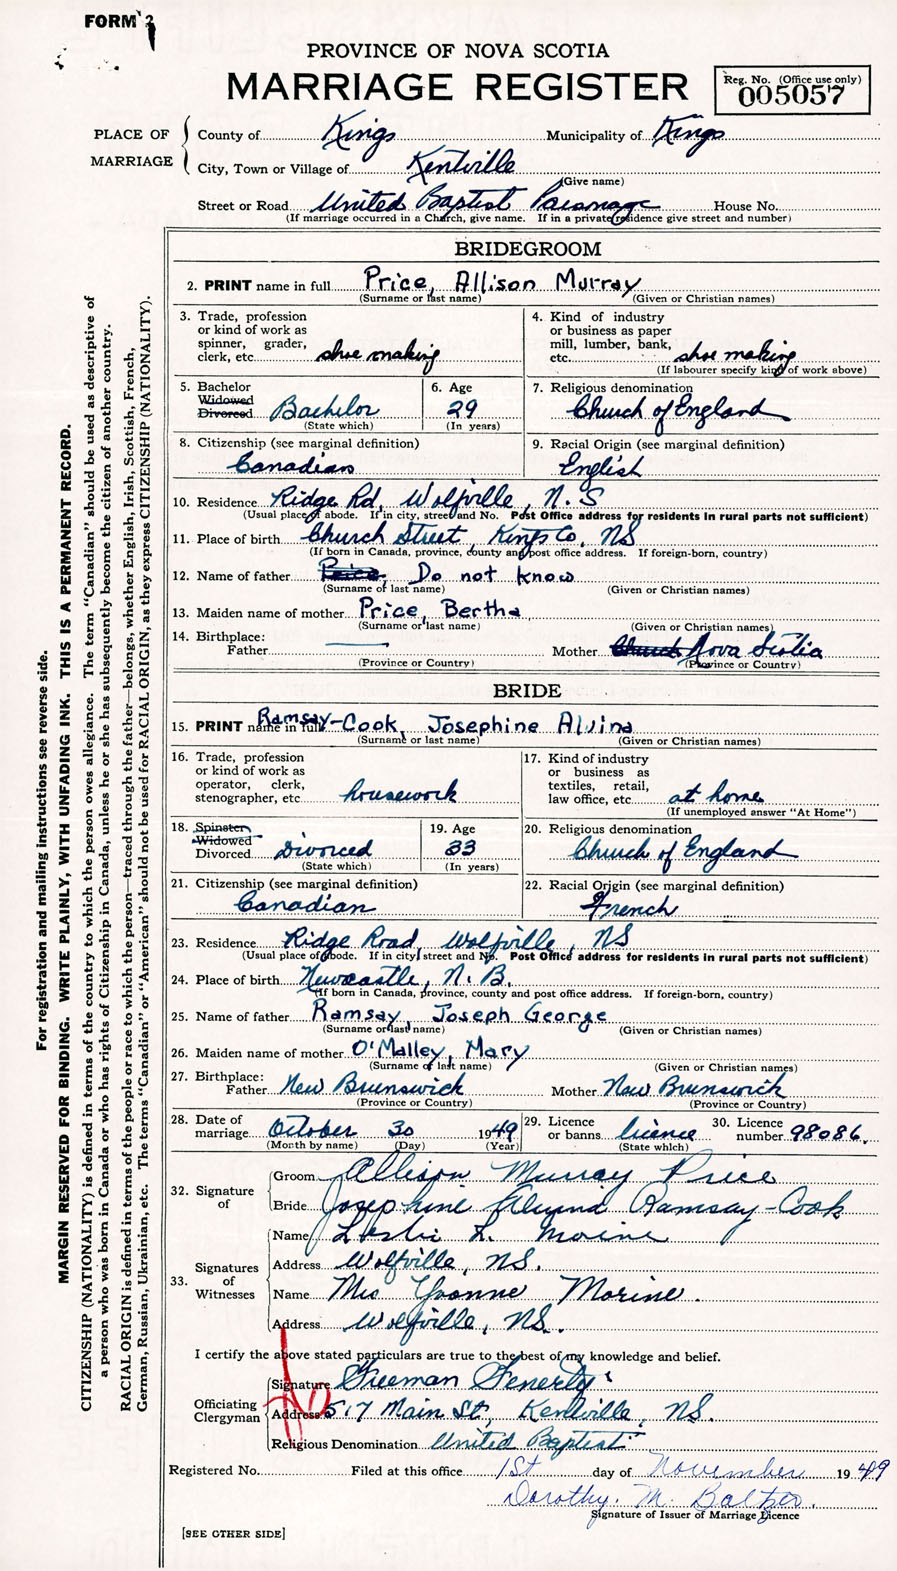 FORM 2
PROVINCE OF NOVA SCOTIA
MARRIAGE REGISTER
Reg. No. (Office use only)
005057
PLACE OF MARRIAGE
County of Kings Municipality of Kings
City, Town or Village of Kentville
(Give name)
Street or Road United Baptist Parsonage House No.
(If marriage occurred in a Church, give name. If in a private residence give street and number)
BRIDEGROOM
2. PRINT name in full Price, Allison Murray
(Surname or last name) (Given or Christian names)
3. Trade, profession or kind of work as spinner, grader, clerk, etc. shoe making
4. Kind of industry or business as paper mill, lumber, bank, etc. shoe making
(If labourer specify kind of work above)
5. Bachelor Widowed Divorced Bachelor
(State which)
6. Age 29
(In years)
7. Religious denomination
Church of England
8. Citizenship (see marginal definition)
Canadian
9. Racial Origin (see marginal definition)
English
10. Residence Ridge Rd, Wolfville, N.S
(Usual place of abode. If in city, street and No. Post Office address for residents in rural parts not sufficient)
11. Place of birth Church Street, Kings Co, NS
(If born in Canada, province, county and post office address. If foreign-born, country)
12. Name of father Price, Do not know
(Surname or last name) (Given or Christian names)
13. Maiden name of mother Price, Bertha
(Surname or last name) (Given or Christian names)
14. Birthplace:
Father — Mother Church Nova Scotia
(Province or Country) (Province or Country)
BRIDE
15. PRINT name in full Ramsay-Cook, Josephine Alvina
(Surname or last name) (Given or Christian names)
16. Trade, profession or kind of work as operator, clerk, stenographer, etc. housework
17. Kind of industry or business as textiles, retail, law office, etc. at home
(If unemployed answer "At Home")
18. Spinster Widowed Divorced Divorced
(State which)
19. Age 33
(In years)
20. Religious denomination
Church of England
21. Citizenship (see marginal definition)
Canadian
22. Racial Origin (see marginal definition)
French
23. Residence Ridge Road, Wolfville, NS
(Usual place of abode. If in city, street and No. Post Office address for residents in rural parts not sufficient)
24. Place of birth Newcastle, N.B.
(If born in Canada, province, county and post office address. If foreign-born, country)
25. Name of father Ramsay, Joseph George
(Surname or last name) (Given or Christian names)
26. Maiden name of mother O'Malley, Mary
(Surname or last name) (Given or Christian names)
27. Birthplace:
Father New Brunswick Mother New Brunswick
(Province or Country) (Province or Country)
28. Date of marriage October 30 1949
(Month by name) (Day) (Year)
29. Licence or banns licence
(State which)
30. Licence number 98086.
32. Signature of
Groom Allison Murray Price
Bride Josephine Alvina Ramsay-Cook
33. Signatures of Witnesses
Name Leslie L. Morine
Address Wolfville, NS.
Name Mrs Yvonne Morine.
Address Wolfville, NS.
I certify the above stated particulars are true to the best of my knowledge and belief.
Officiating Clergyman
Signature Freeman Fenerty
Address 517 Main St, Kentville, NS.
Religious Denomination United Baptist
Registered No. Filed at this office 1st day of November 1949
Dorothy. M. Baltzer.
Signature of Issuer of Marriage Licence
[SEE OTHER SIDE]
For registration and mailing instructions see reverse side.
MARGIN RESERVED FOR BINDING. WRITE PLAINLY, WITH UNFADING INK. THIS IS A PERMANENT RECORD.
CITIZENSHIP (NATIONALITY) is defined in terms of the country to which the person owes allegiance. The term "Canadian" should be used as descriptive of
a person who was born in Canada or who has rights of Citizenship in Canada, unless he or she has subsequently become the citizen of another country.
RACIAL ORIGIN is defined in terms of the people or race to which the person—traced through the father—belongs, whether English, Irish, Scottish, French,
German, Russian, Ukrainian, etc. The terms "Canadian" or "American" should not be used for RACIAL ORIGIN, as they express CITIZENSHIP (NATIONALITY).